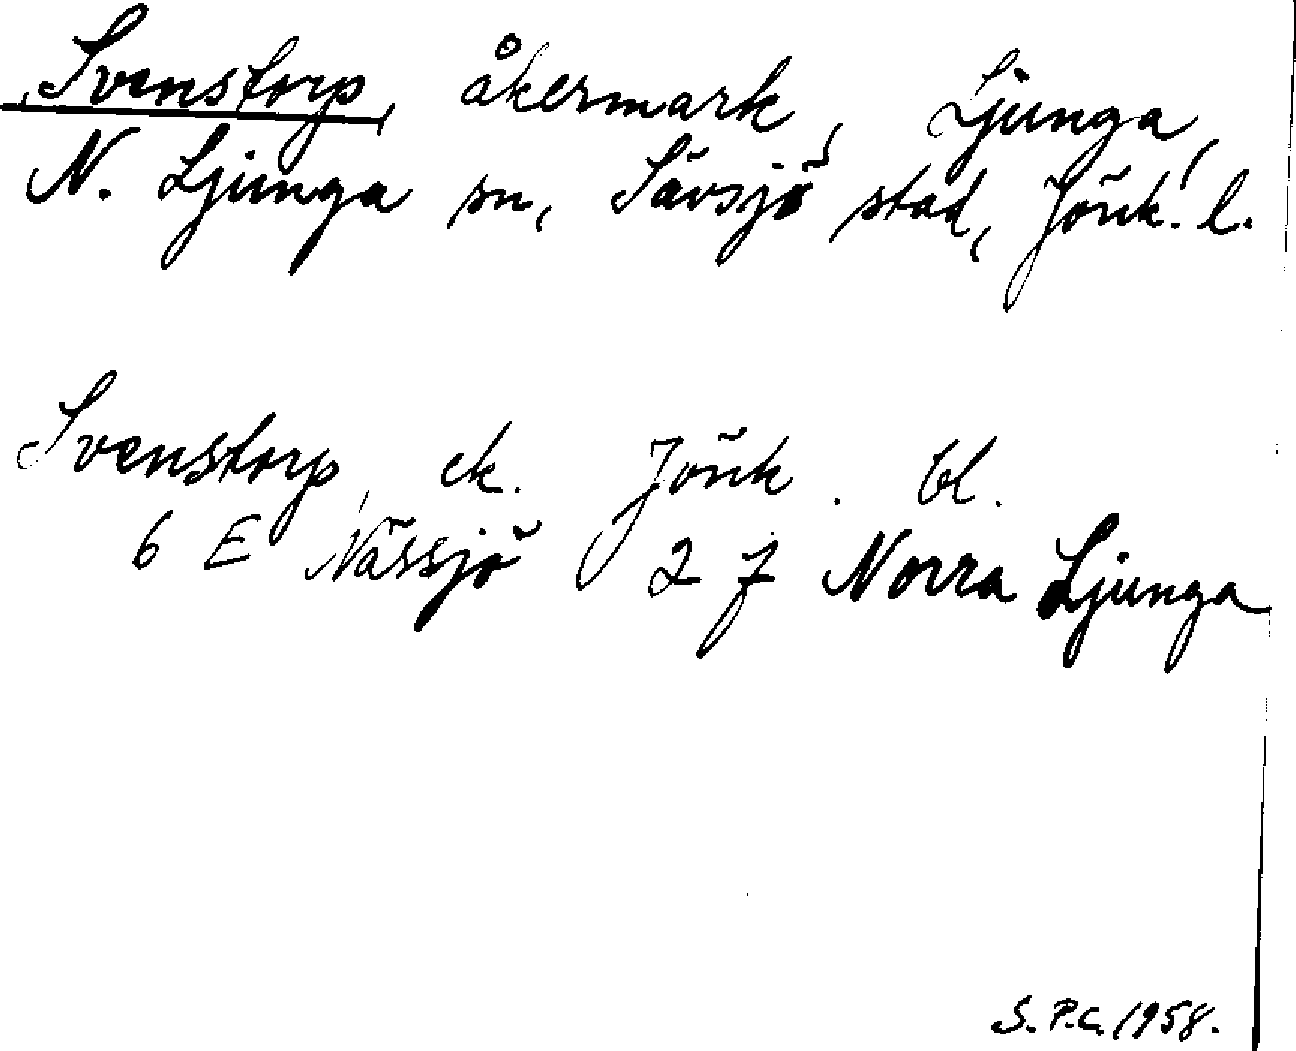 Svenstorp, åkermark, Ljunga,
N. Ljunga sn, Sävsjö stad, Jönk. l.
Svenstorp, ek. Jönk. bl.
6 E Nässjö 2 f Norra Ljunga
S.P.C. 1958.